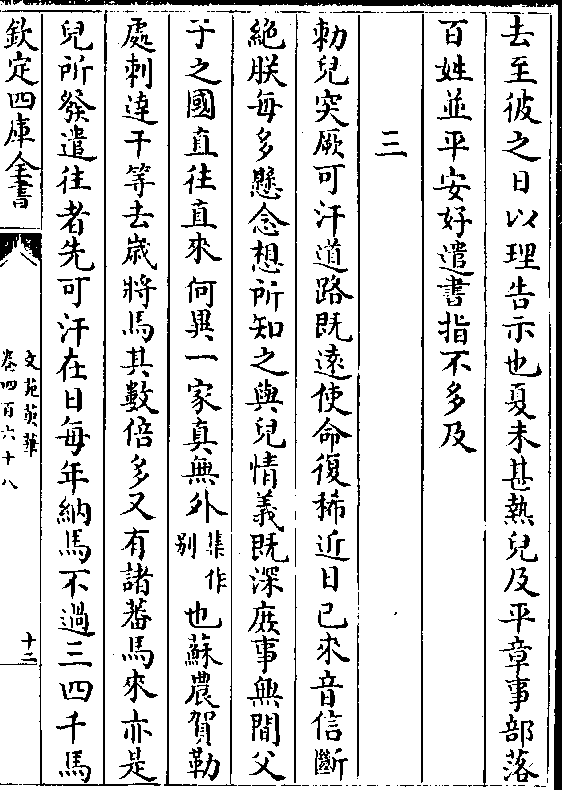 去至彼之日以理告示也夏末甚熱兒及平章事部落
百姓並平安好遣書指不多及
三
勅兒突厥可汗道路既遠使命復稀近日已來音信斷
絶朕每多懸念想所知之與兒情義既深庻事無間父
子之國直往直來何異一家真無外集作别也蘇農賀勒
處刺達干等去歲將馬其數倍多又有諸蕃馬來亦是
兒所發遣往者先可汗在日每年納馬不過三四千馬
欽定四庫全書
文苑英華
卷四百六十八
十二